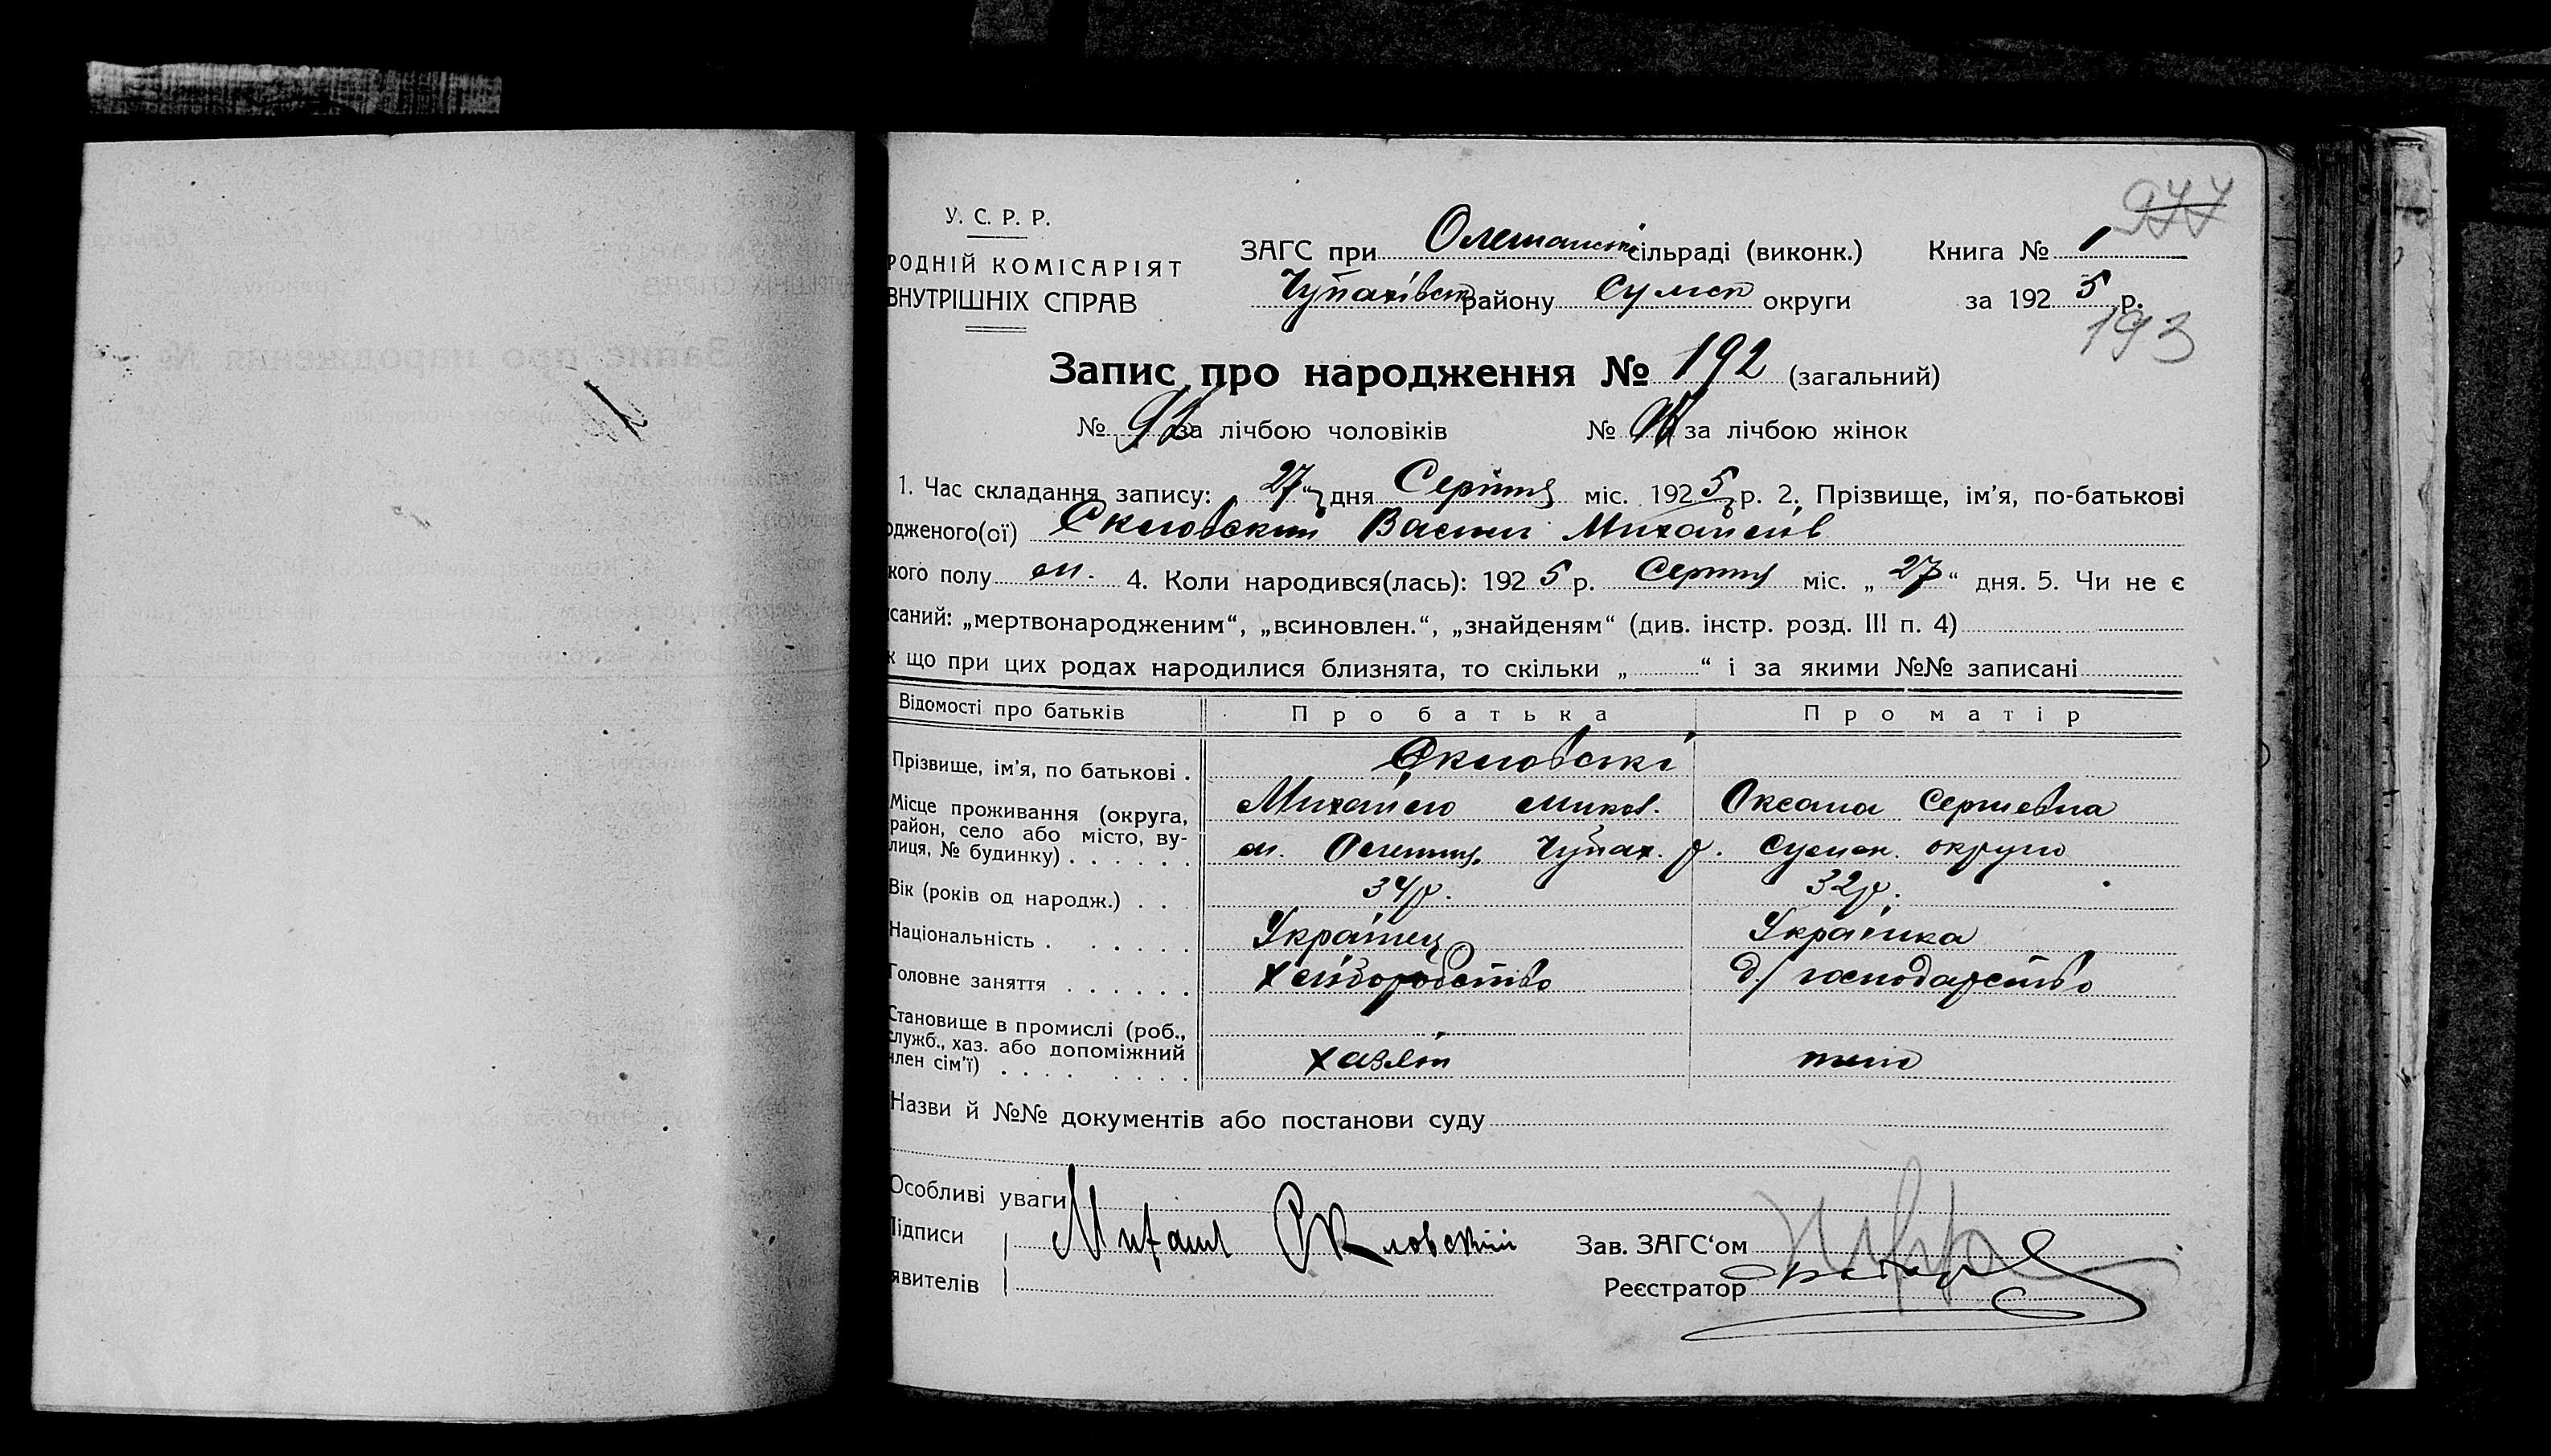 977
У. С. Р. Р.
РОДНІЙ КОМІСАРІЯТ
ВНУТРІШНІХ СПРАВ
ЗАГС при Олешанськ сільраді (виконк.) Книга № 1
Чупахівськ району Сумск округи за 1925 р.
193
Запис про народження № 192 (загальний)
№ за лічбою чоловіків № за лічбою жінок
1. Час складання запису: „27“ дня Серпня міс. 1925 р. 2. Прізвище, ім’я, по-батькові
одженого(ої) Скловский Василь Михайлів
кого полу м. 4. Коли народився(лась): 1925 р. Серпня міс. „27“ дня. 5. Чи не є
саний: „мертвонародженим“, „всиновлен.“, „знайденям“ (див. інстр. розд. III п. 4)
к що при цих родах народилися близнята, то скільки „ “ і за якими №№ записані
Відомості про батьків Про батька Про матір
Прізвище, ім’я, по батькові . Скловські
Михайло Микол. Оксана Сергиевна
Місце проживання (округа,
район, село або місто, ву-
лиця, № будинку) . . . . . . м. Олешня Чупах. р. Сумск. округи
Вік (років од народж.) . . . 34 р. 32 р.
Національність . . . . . . Українец Українка
Головне заняття . . . . . . Хліборобство д/господарство
Становище в промислі (роб.,
служб., хаз. або допоміжний
член сім’ї) . . . . . . . . хазяїн
Назви й №№ документів або постанови суду
Особливі уваги
Підписи Михаил Скловский Зав. ЗАГС‘ом
явителів Реєстратор